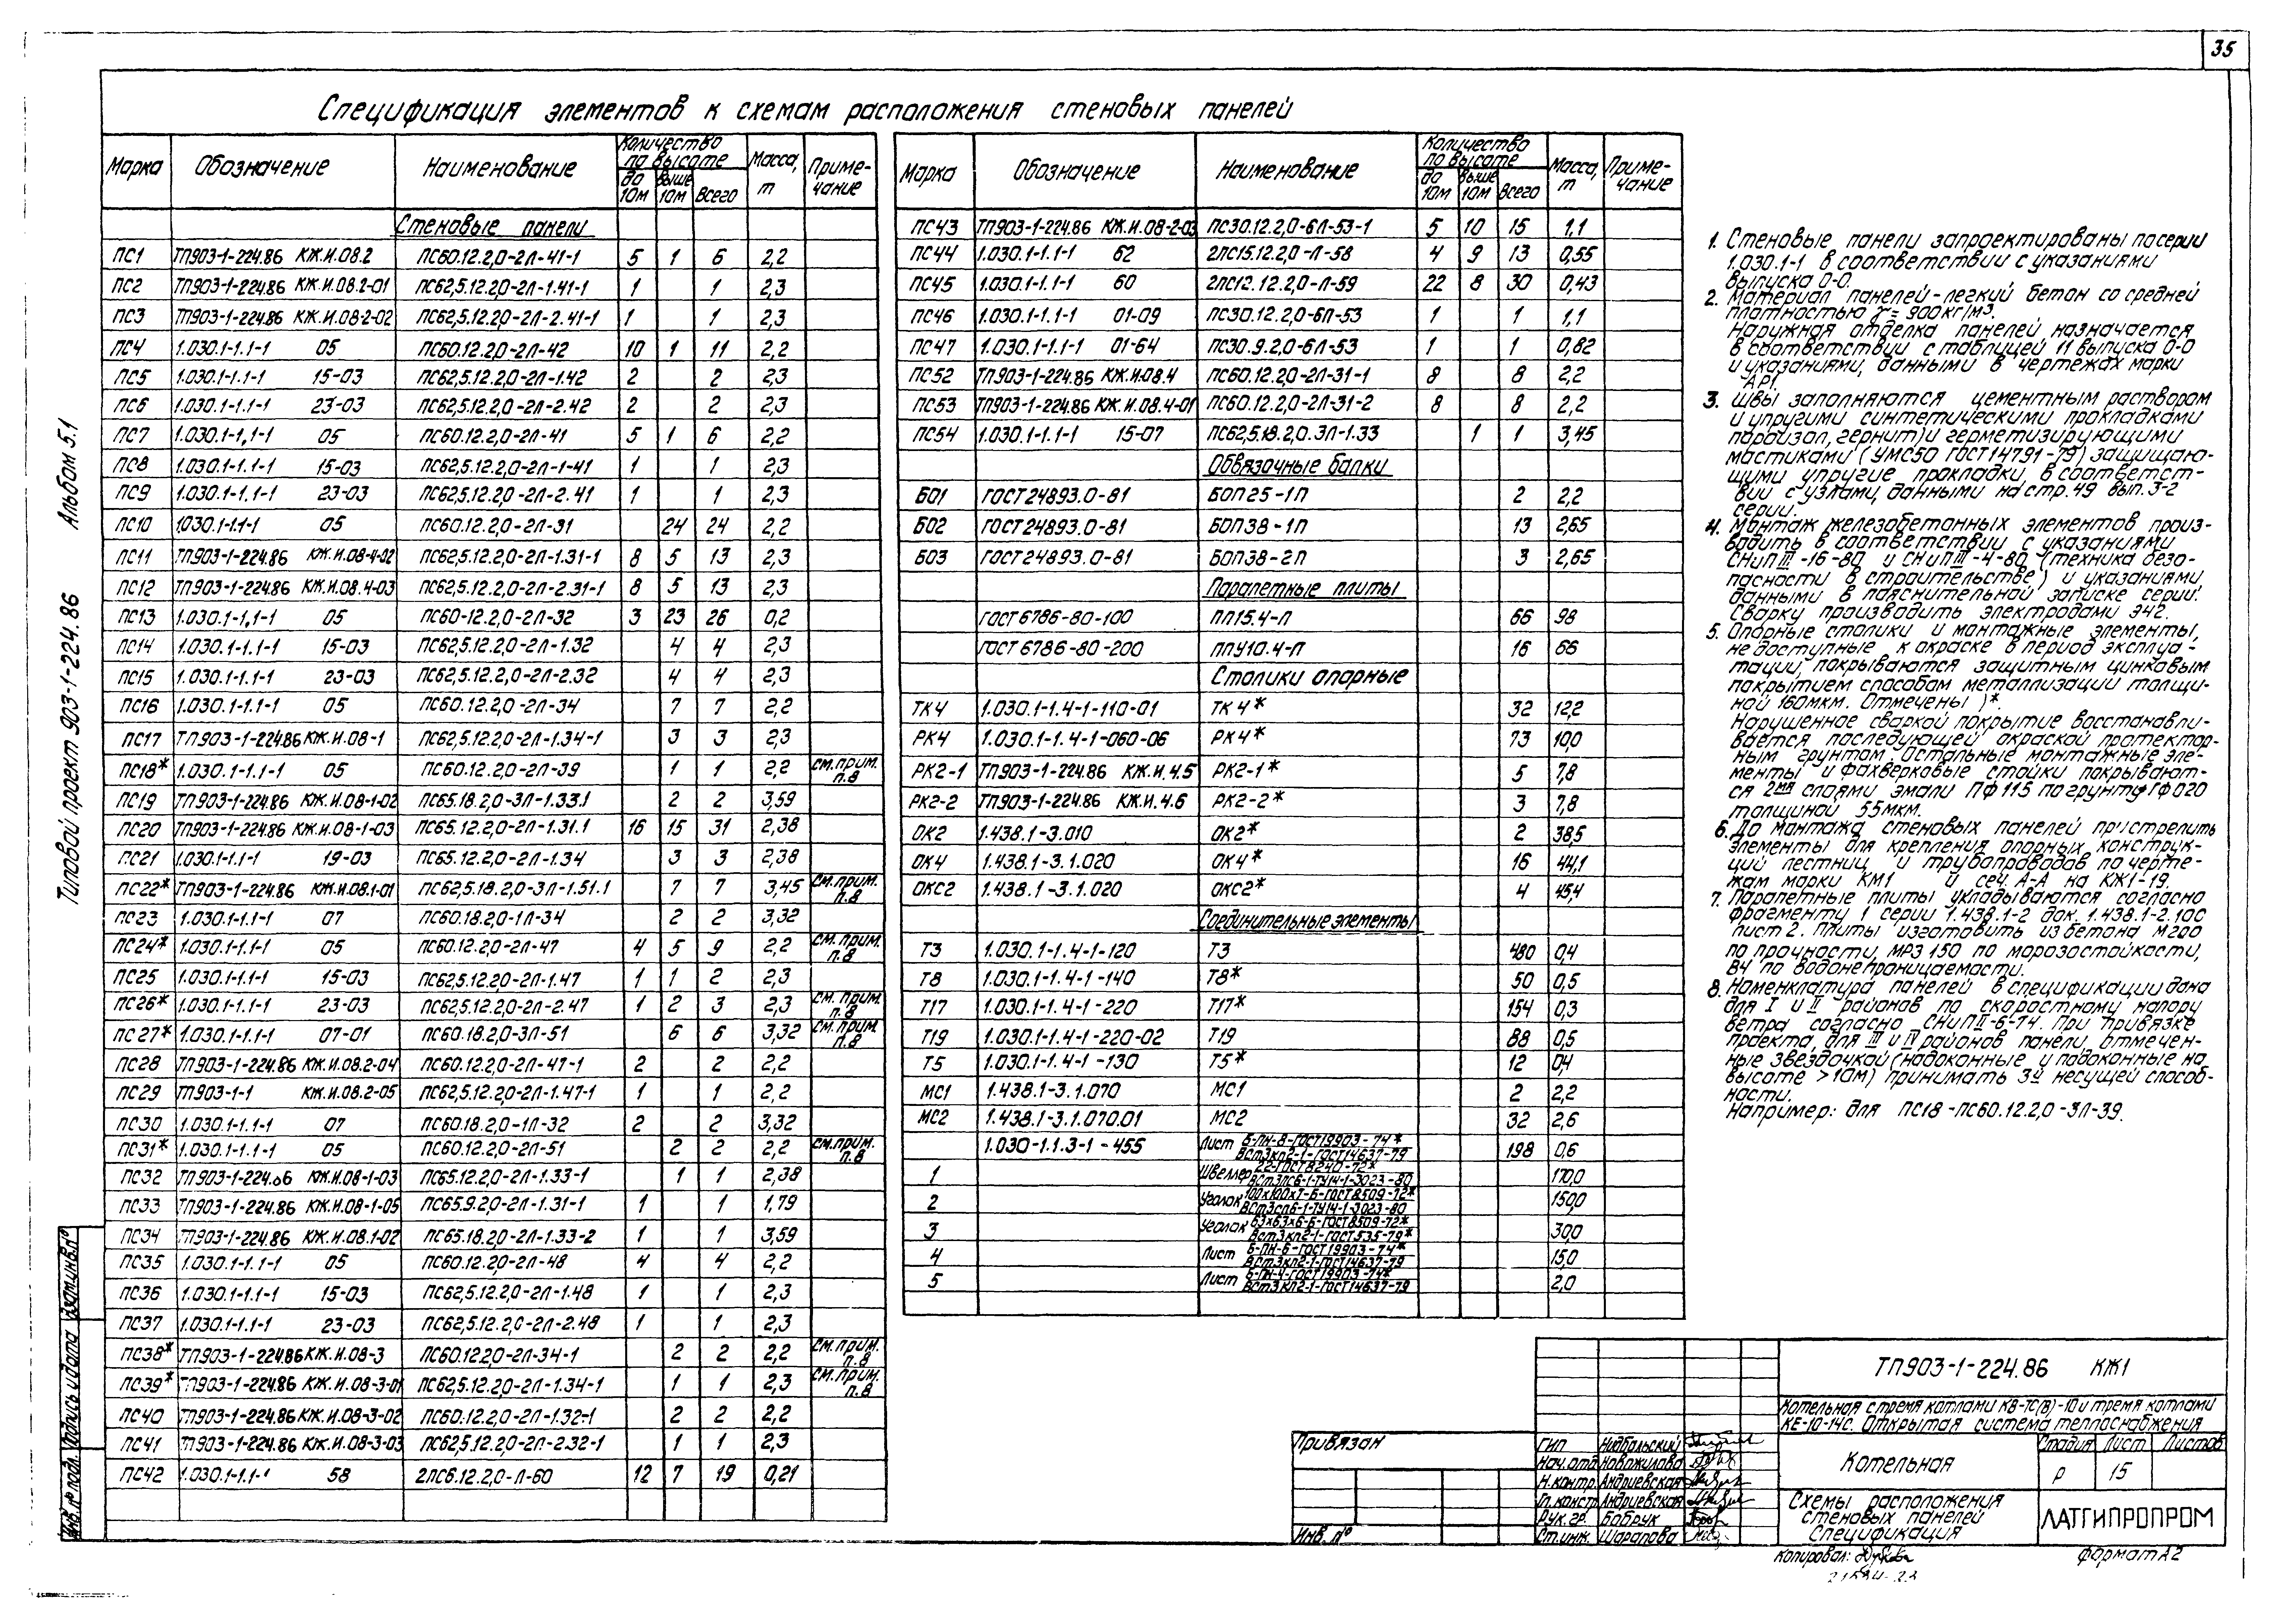 35
Спецификация элементов к схемам расположения стеновых панелей
Марка Обозначение Наименование Количество по высоте до 10м выше 10м всего Масса, т Примечание
Стеновые панели
ПС1 ТП903-1-224.86 КЖ.И.08.2 ПС60.12.2,0-2Л-41-1 5 1 6 2,2
ПС2 ТП903-1-224.86 КЖ.И.08.2-01 ПС62,5.12.2,0-2Л-1.41-1 1 1 2,3
ПС3 ТП903-1-224.86 КЖ.И.08-2-02 ПС62,5.12.2,0-2Л-2.41-1 1 1 2,3
ПС4 1.030.1-1.1-1 05 ПС60.12.2,0-2Л-42 10 1 11 2,2
ПС5 1.030.1-1.1-1 15-03 ПС62,5.12.2,0-2Л-1.42 2 2 2,3
ПС6 1.030.1-1.1-1 23-03 ПС62,5.12.2,0-2Л-2.42 2 2 2,3
ПС7 1.030.1-1,1-1 05 ПС60.12.2,0-2Л-41 5 1 6 2,2
ПС8 1.030.1-1.1-1 15-03 ПС62,5.12.2,0-2Л-1-41 1 1 2,3
ПС9 1.030.1-1.1-1 23-03 ПС62,5.12.2,0-2Л-2.41 1 1 2,3
ПС10 1030.1-1.1-1 05 ПС60.12.2,0-2Л-31 24 24 2,2
ПС11 ТП903-1-224.86 КЖ.И.08-4-02 ПС62,5.12.2,0-2Л-1.31-1 8 5 13 2,3
ПС12 ТП903-1-224.86 КЖ.И.08.4-03 ПС62,5.12.2,0-2Л-2.31-1 8 5 13 2,3
ПС13 1.030.1-1,1-1 05 ПС60-12.2,0-2Л-32 3 23 26 0,2
ПС14 1.030.1-1.1-1 15-03 ПС62,5.12.2,0-2Л-1.32 4 4 2,3
ПС15 1.030.1-1.1-1 23-03 ПС62,5.12.2,0-2Л-2.32 4 4 2,3
ПС16 1.030.1-1.1-1 05 ПС60.12.2,0-2Л-34 7 7 2,2
ПС17 ТП903-1-224.86 КЖ.И.08-1 ПС62,5.12.2,0-2Л-1.34-1 3 3 2,3
ПС18* 1.030.1-1.1-1 05 ПС60.12.2,0-2Л-39 1 1 2,2 см.прим. п.8
ПС19 ТП903-1-224.86 КЖ.И.08-1-02 ПС65.18.2,0-3Л-1.33.1 2 2 3,59
ПС20 ТП903-1-224.86 КЖ.И.08-1-03 ПС65.12.2,0-2Л-1.31.1 16 15 31 2,38
ПС21 1.030.1-1.1-1 19-03 ПС65.12.2,0-2Л-1.34 3 3 2,38
ПС22* ТП903-1-224.86 КЖ.И.08.1-01 ПС62,5.18.2,0-3Л-1.51.1 7 7 3,45 см.прим. п.8
ПС23 1.030.1-1.1-1 07 ПС60.18.2,0-1Л-34 2 2 3,32
ПС24* 1.030.1-1.1-1 05 ПС60.12.2,0-2Л-47 4 5 9 2,2 см.прим. п.8
ПС25 1.030.1-1.1-1 15-03 ПС62,5.12.2,0-2Л-1.47 1 1 2 2,3
ПС26* 1.030.1-1.1-1 23-03 ПС62,5.12.2,0-2Л-2.47 1 2 3 2,3 см.прим. п.8
ПС27* 1.030.1-1.1-1 07-01 ПС60.18.2,0-3Л-51 6 6 3,32 см.прим. п.8
ПС28 ТП903-1-224.86 КЖ.И.08.2-04 ПС60.12.2,0-2Л-47-1 2 2 2,2
ПС29 ТП903-1-1 КЖ.И.08.2-05 ПС62,5.12.2,0-2Л-1.47-1 1 1 2,2
ПС30 1.030.1-1.1-1 07 ПС60.18.2,0-1Л-32 2 2 3,32
ПС31* 1.030.1-1.1-1 05 ПС60.12.2,0-2Л-51 2 2 2,2 см.прим. п.8
ПС32 ТП903-1-224.86 КЖ.И.08-1-03 ПС65.12.2,0-2Л-1.33-1 1 1 2,38
ПС33 ТП903-1-224.86 КЖ.И.08-1-05 ПС65.9.2,0-2Л-1.31-1 1 1 1,79
ПС34 ТП903-1-224.86 КЖ.И.08.1-02 ПС65.18.2,0-2Л-1.33-2 1 1 3,59
ПС35 1.030.1-1.1-1 05 ПС60.12.2,0-2Л-48 4 4 2,2
ПС36 1.030.1-1.1-1 15-03 ПС62,5.12.2,0-2Л-1.48 1 1 2,3
ПС37 1.030.1-1.1-1 23-03 ПС62,5.12.2,0-2Л-2.48 1 1 2,3
ПС38* ТП903-1-224.86 КЖ.И.08-3 ПС60.12.2,0-2Л-34-1 2 2 2,2 см.прим. п.8
ПС39* ТП903-1-224.86 КЖ.И.08-3-01 ПС62,5.12.2,0-2Л-1.34-1 1 1 2,3 см.прим. п.8
ПС40 ТП903-1-224.86 КЖ.И.08-3-02 ПС60.12.2,0-2Л-1.32-1 2 2 2,2
ПС41 ТП903-1-224.86 КЖ.И.08-3-03 ПС62,5.12.2,0-2Л-2.32-1 1 1 2,3
ПС42 1.030.1-1.1-1 58 2ПС6.12.2,0-Л-60 12 7 19 0,21
Марка Обозначение Наименование Количество по высоте до 10м выше 10м всего Масса, т Примечание
ПС43 ТП903-1-224.86 КЖ.И.08-2-03 ПС30.12.2,0-6Л-53-1 5 10 15 1,1
ПС44 1.030.1-1.1-1 62 2ПС15.12.2,0-Л-58 4 9 13 0,55
ПС45 1.030.1-1.1-1 60 2ПС12.12.2,0-Л-59 22 8 30 0,43
ПС46 1.030.1-1.1-1 01-09 ПС30.12.2,0-6Л-53 1 1 1,1
ПС47 1.030.1-1.1-1 01-64 ПС30.9.2,0-6Л-53 1 1 0,82
ПС52 ТП903-1-224.86 КЖ.И.08.4 ПС60.12.2,0-2Л-31-1 8 8 2,2
ПС53 ТП903-1-224.86 КЖ.И.08.4-01 ПС60.12.2,0-2Л-31-2 8 8 2,2
ПС54 1.030.1-1.1-1 15-07 ПС62,5.18.2,0.3Л-1.33 1 1 3,45
Обвязочные балки
БО1 ГОСТ24893.0-81 БОП25-1П 2 2,2
БО2 ГОСТ24893.0-81 БОП38-1П 13 2,65
БО3 ГОСТ24893.0-81 БОП38-2П 3 2,65
Парапетные плиты
ГОСТ6786-80-100 ПП15.4-П 66 98
ГОСТ6786-80-200 ППУ10.4-П 16 66
Столики опорные
ТК4 1.030.1-1.4-1-110-01 ТК4* 32 12,2
РК4 1.030.1-1.4-1-060-06 РК4* 73 10,0
РК2-1 ТП903-1-224.86 КЖ.И.4.5 РК2-1* 5 7,8
РК2-2 ТП903-1-224.86 КЖ.И.4.6 РК2-2* 3 7,8
ОК2 1.438.1-3.010 ОК2* 2 38,5
ОК4 1.438.1-3.1.020 ОК4* 16 44,1
ОКС2 1.438.1-3.1.020 ОКС2* 4 45,4
Соединительные элементы
Т3 1.030.1-1.4-1-120 Т3 480 0,4
Т8 1.030.1-1.4-1-140 Т8* 50 0,5
Т17 1.030.1-1.4-1-220 Т17* 154 0,3
Т19 1.030.1-1.4-1-220-02 Т19 88 0,5
Т5 1.030.1-1.4-1-130 Т5* 12 0,4
МС1 1.438.1-3.1.070 МС1 2 2,2
МС2 1.438.1-3.1.070.01 МС2 32 2,6
1.030-1.1.3-1-455 Лист Б-ПН-8-ГОСТ19903-74* ВСт3кп2-1-ГОСТ14637-79 198 0,6
1 Швеллер 22-ГОСТ8240-72* ВСт3пс6-1-ТУ14-1-3023-80 170,0
2 Уголок 100х100х7-Б-ГОСТ8509-72* ВСт3сп6-1-ТУ14-1-3023-80 150,0
3 Уголок 63х63х6-Б-ГОСТ8509-72* ВСт3кп2-1-ГОСТ535-79* 30,0
4 Лист Б-ПН-6-ГОСТ19903-74* ВСт3кп2-1-ГОСТ14637-79 15,0
5 Лист Б-ПН-4-ГОСТ19903-74* ВСт3кп2-1-ГОСТ14637-79 2,0
1. Стеновые панели запроектированы по серии
1.030.1-1 в соответствии с указаниями
выпуска 0-0.
2. Материал панелей-легкий бетон со средней
плотностью γ=900кг/м3.
Наружная отделка панелей назначается
в соответствии с таблицей 11 выпуска 0-0
и указаниями, данными в чертежах марки
АР1.
3. Швы заполняются цементным раствором
и упругими синтетическими прокладками
пароизол, гернит) и герметизирующими
мастиками (УМС50 ГОСТ14791-79) защищаю-
щими упругие прокладки в соответст-
вии с узлами, данными на стр.49 вып.3-2
серии.
4. Монтаж железобетонных элементов произ-
водить в соответствии с указаниями
СНиП III-16-80 и СНиП III-4-80 (техника безо-
пасности в строительстве) и указаниями,
данными в пояснительной записке серии.
Сварку производить электродами Э42.
5. Опорные столики и монтажные элементы,
недоступные к окраске в период эксплуа-
тации, покрываются защитным цинковым
покрытием способом металлизации толщи-
ной 160мкм. Отмечены )*.
Нарушенное сваркой покрытие восстанавли-
вается последующей окраской протектор-
ным грунтом. Остальные монтажные эле-
менты и фахверковые стойки покрывают-
ся 2мя слоями эмали ПФ115 по грунту ГФ020
толщиной 55мкм.
6. До монтажа стеновых панелей пристрелить
элементы для крепления опорных конструк-
ций лестниц и трубопроводов по черте-
жам марки КМ1 и сеч. А-А на КЖ1-19.
7. Парапетные плиты укладываются согласно
фрагменту 1 серии 1.438.1-2 док. 1.438.1-2.10С
лист 2. Плиты изготовить из бетона М200
по прочности, МРЗ 150 по морозостойкости,
В4 по водонепроницаемости.
8. Номенклатура панелей в спецификации дана
для I и II районов по скоростному напору
ветра согласно СНиП II-6-74. При привязке
проекта, для III и IV районов панели, отмечен-
ные звездочкой (надоконные и подоконные на
высоте >10м) принимать 3й несущей способ-
ности.
Например: для ПС18-ПС60.12.2,0-3Л-39.
Типовой проект 903-1-224.86 Альбом 5.1
Инв.№ подл. Подпись и дата Взам.инв.№
Привязан
Инв.№
ТП903-1-224.86 КЖ1
Котельная с тремя котлами КВ-ТС(В)-10 и тремя котлами
КЕ-10-14С. Открытая система теплоснабжения
ГИП Нидбальский
Нач.отд Новожилова
Н.контр. Андриевская
Гл.констр Андриевская
Рук.гр. Бобрук
Ст.инж. Шарапова
Котельная
Стадия Лист Листов
Р 15
Схемы расположения
стеновых панелей
Спецификация
ЛАТГИПРОПРОМ
Копировал:
формат А2